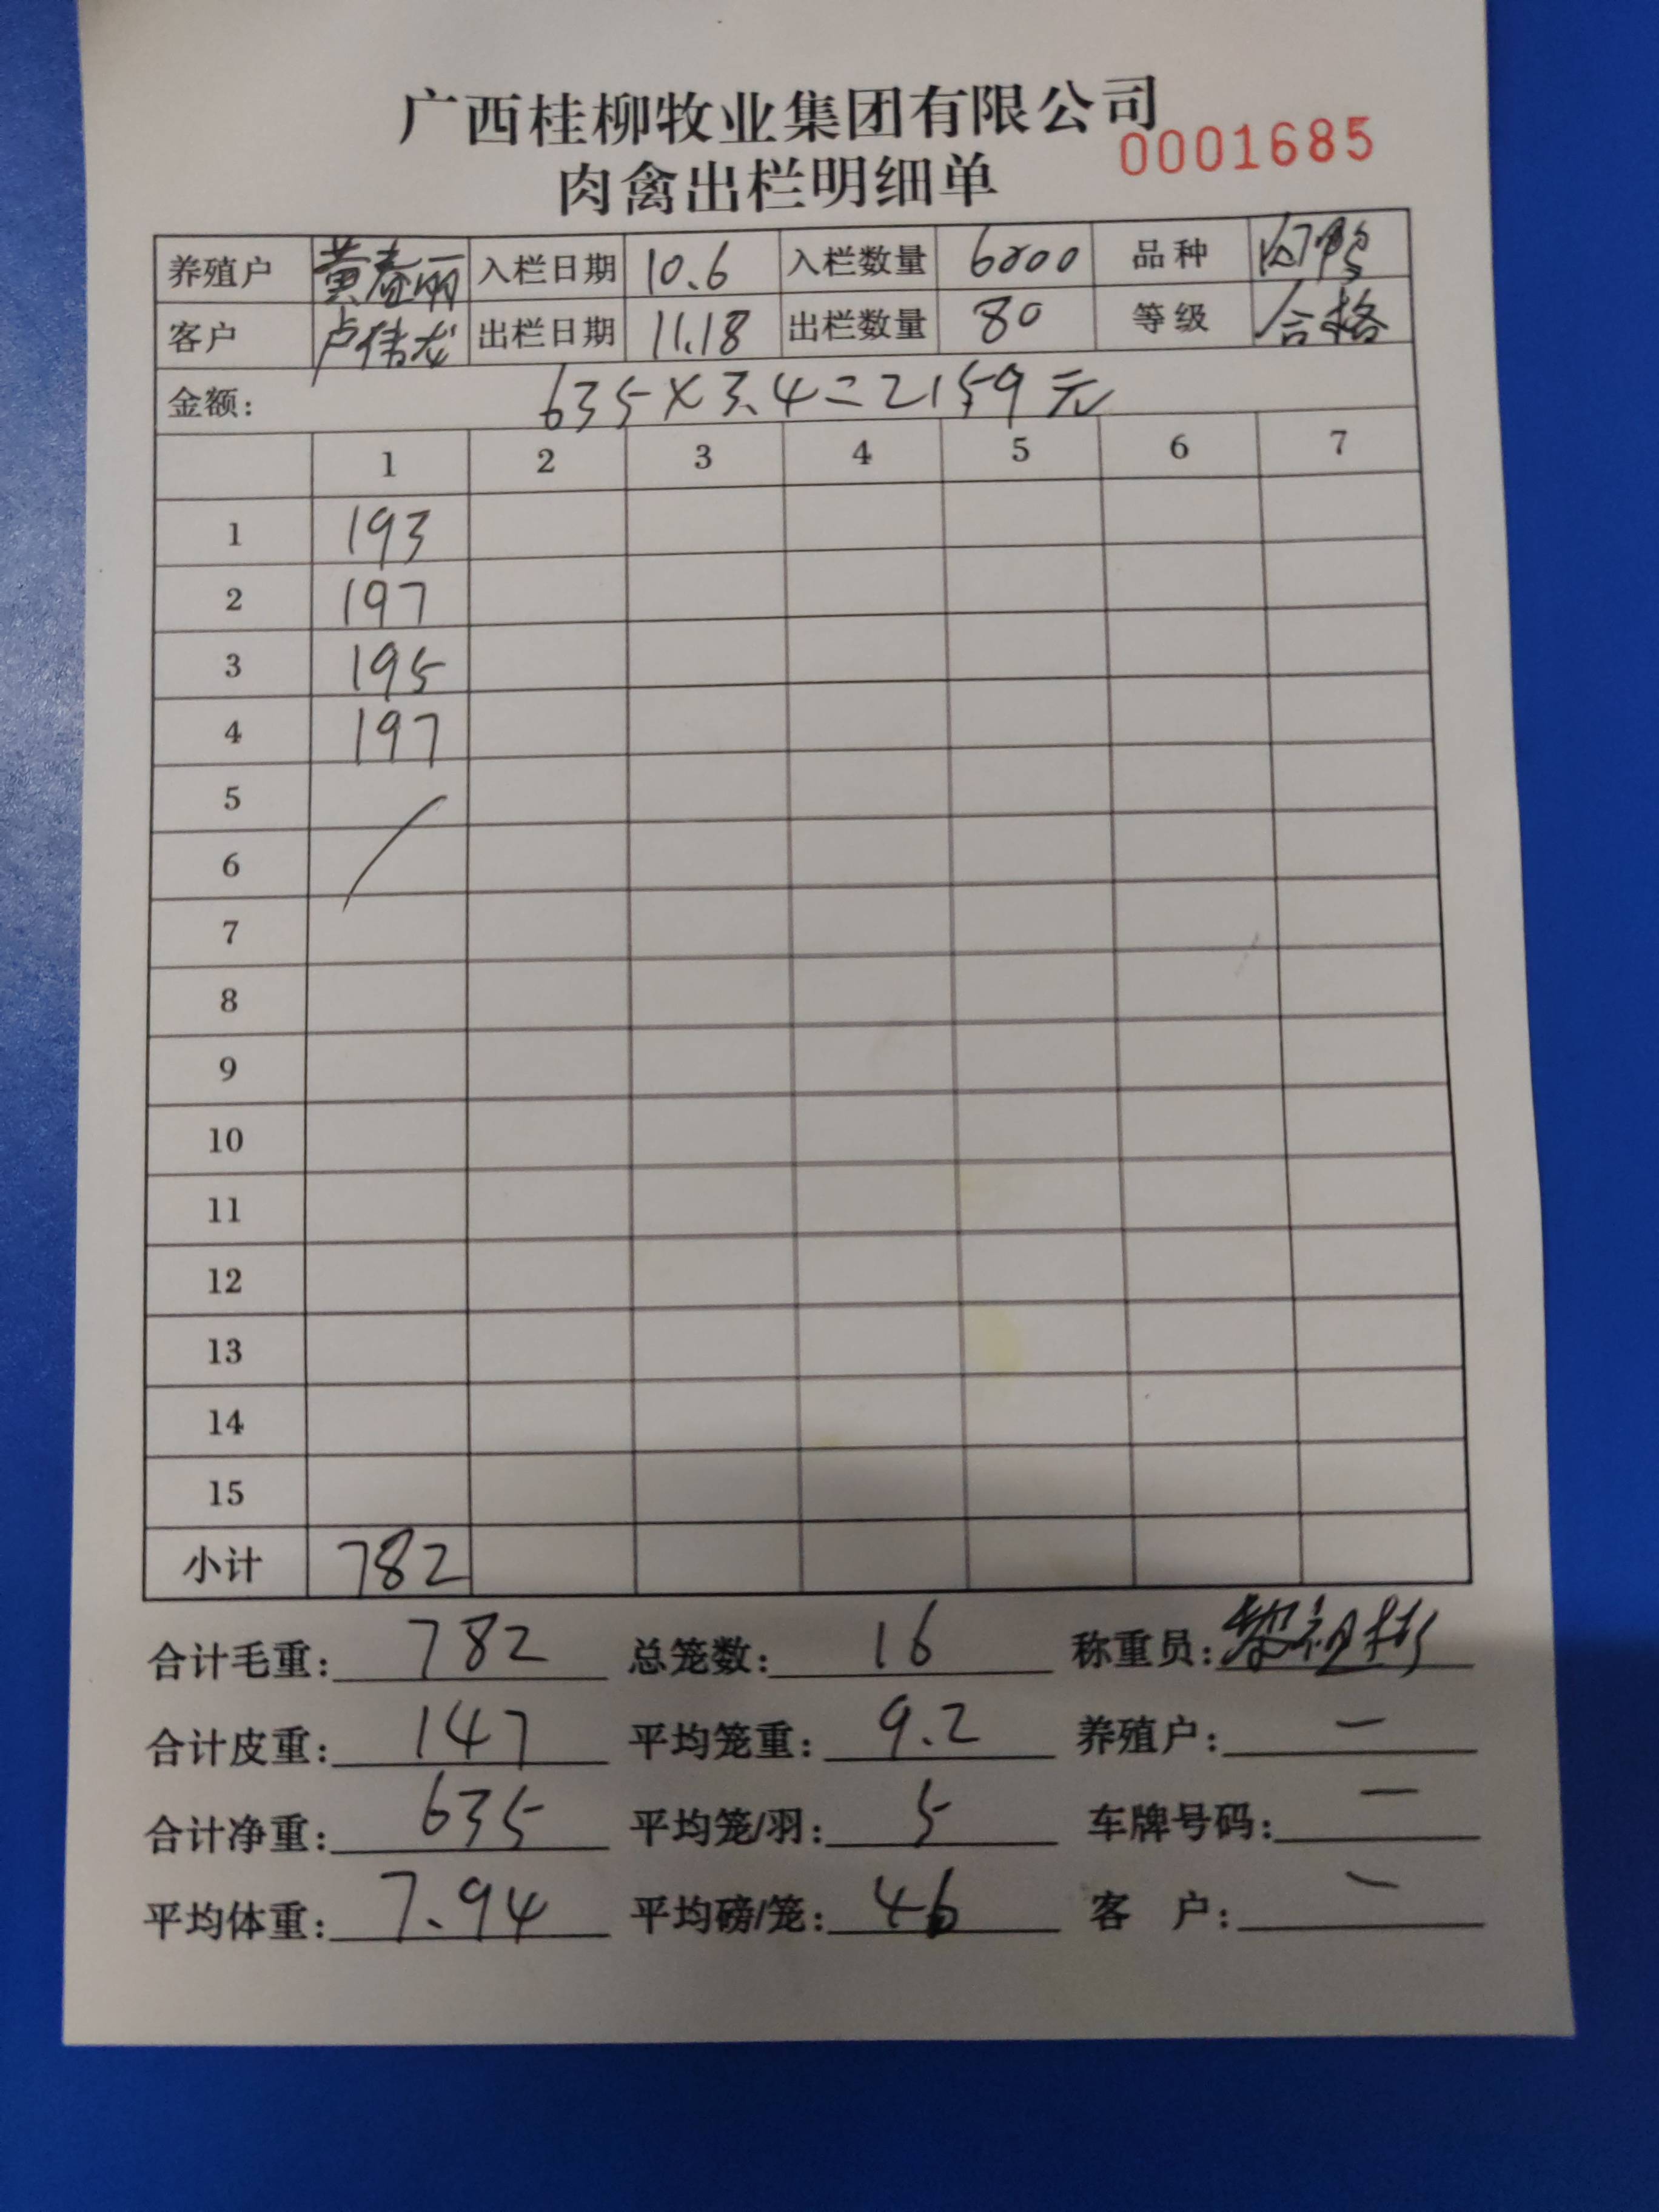 广西桂柳牧业集团有限公司
0001685
肉禽出栏明细单
养殖户 黄春丽 入栏日期 10.6 入栏数量 6800 品种
客户 卢伟龙 出栏日期 11.18 出栏数量 80 等级 合格
金额: 635×3.4=2159元
1 2 3 4 5 6 7
1 193
2 197
3 195
4 197
5
6
7
8
9
10
11
12
13
14
15
小计 782
合计毛重: 782 总笼数: 16 称重员:
合计皮重: 147 平均笼重: 9.2 养殖户: 一
合计净重: 635 平均笼/羽: 5 车牌号码: 一
平均体重: 7.94 平均磅/笼: 46 客 户: 一